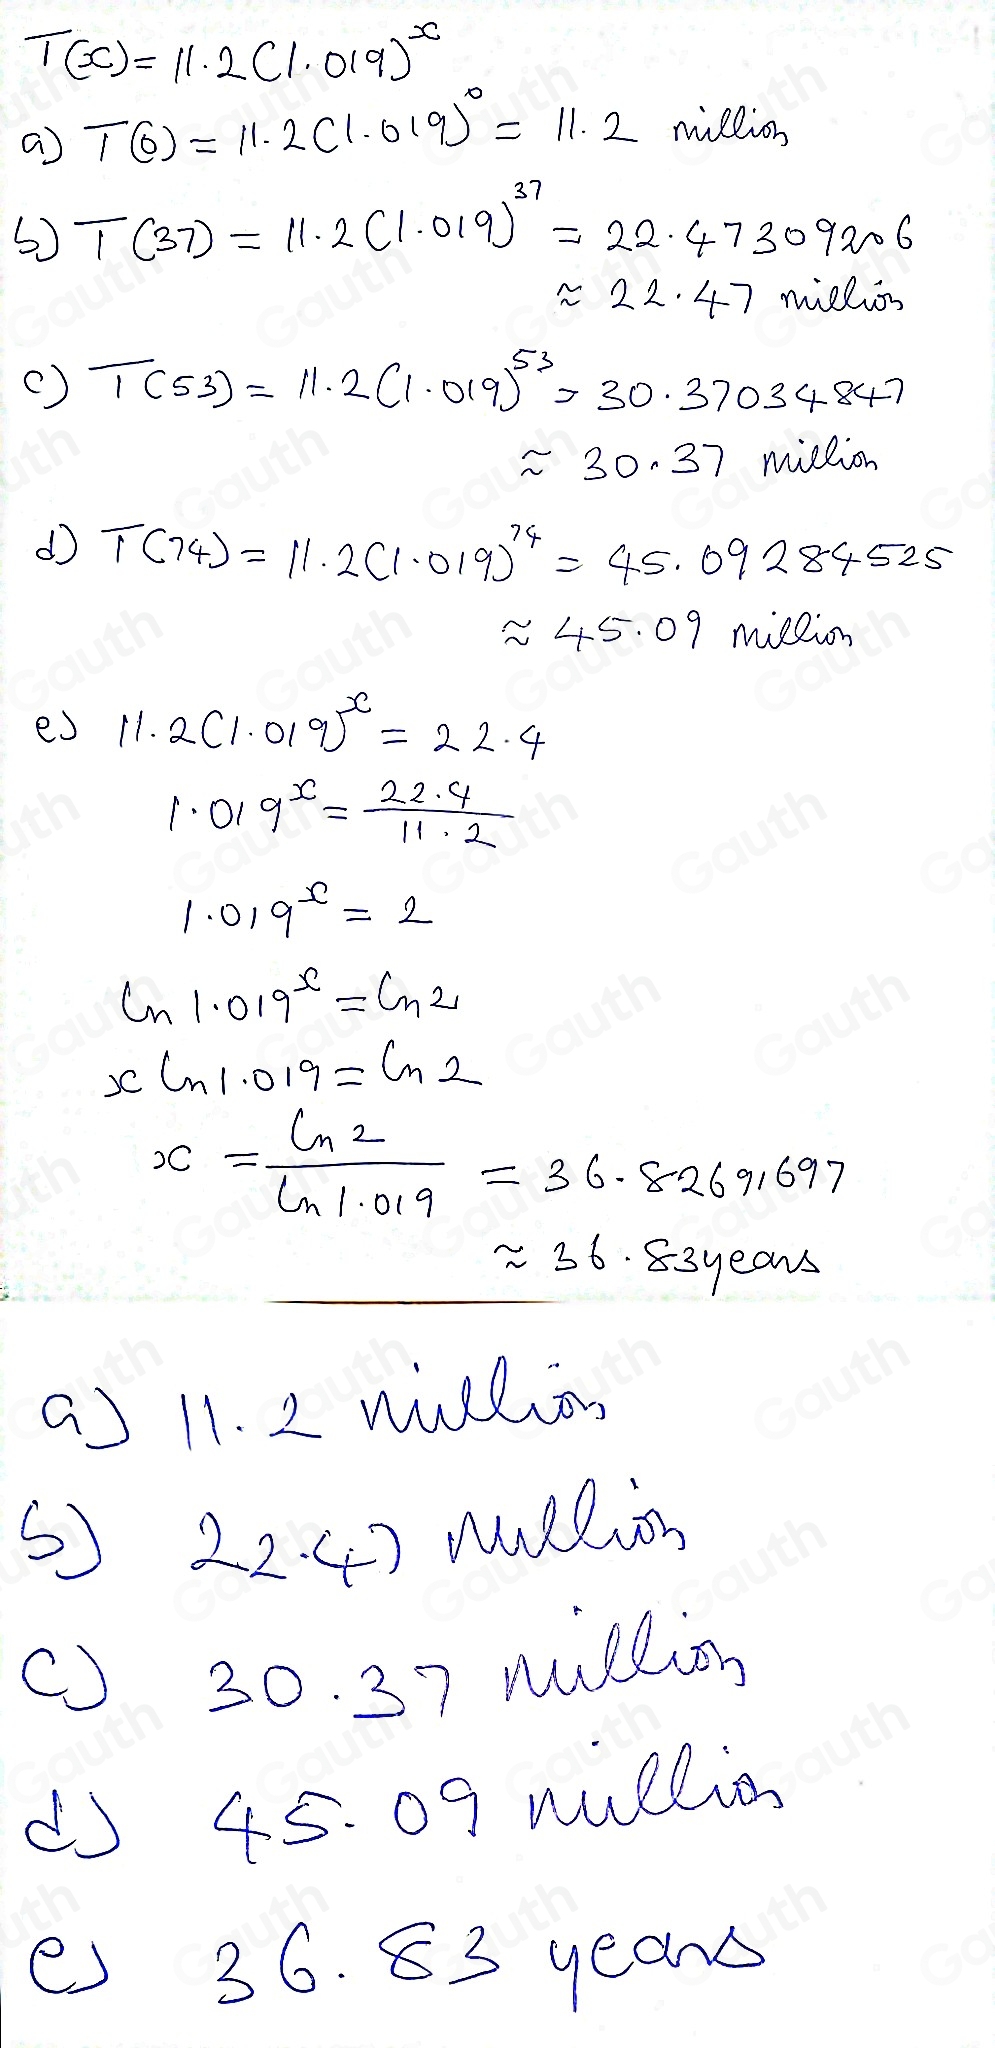 T(x) = 11.2(1.019)^x
a) T(0) = 11.2(1.019)^0 = 11.2 million
b) T(37) = 11.2(1.019)^37 = 22.47309206
≈ 22.47 million
c) T(53) = 11.2(1.019)^53 = 30.37034847
≈ 30.37 million
d) T(74) = 11.2(1.019)^74 = 45.09284525
≈ 45.09 million
e) 11.2(1.019)^x = 22.4
1.019^x = 22.4/11.2
1.019^x = 2
ln 1.019^x = ln 2
x ln 1.019 = ln 2
x = ln 2/ln 1.019 = 36.82691697
≈ 36.83 years
a) 11.2 million
b) 22.47 million
c) 30.37 million
d) 45.09 million
e) 36.83 years